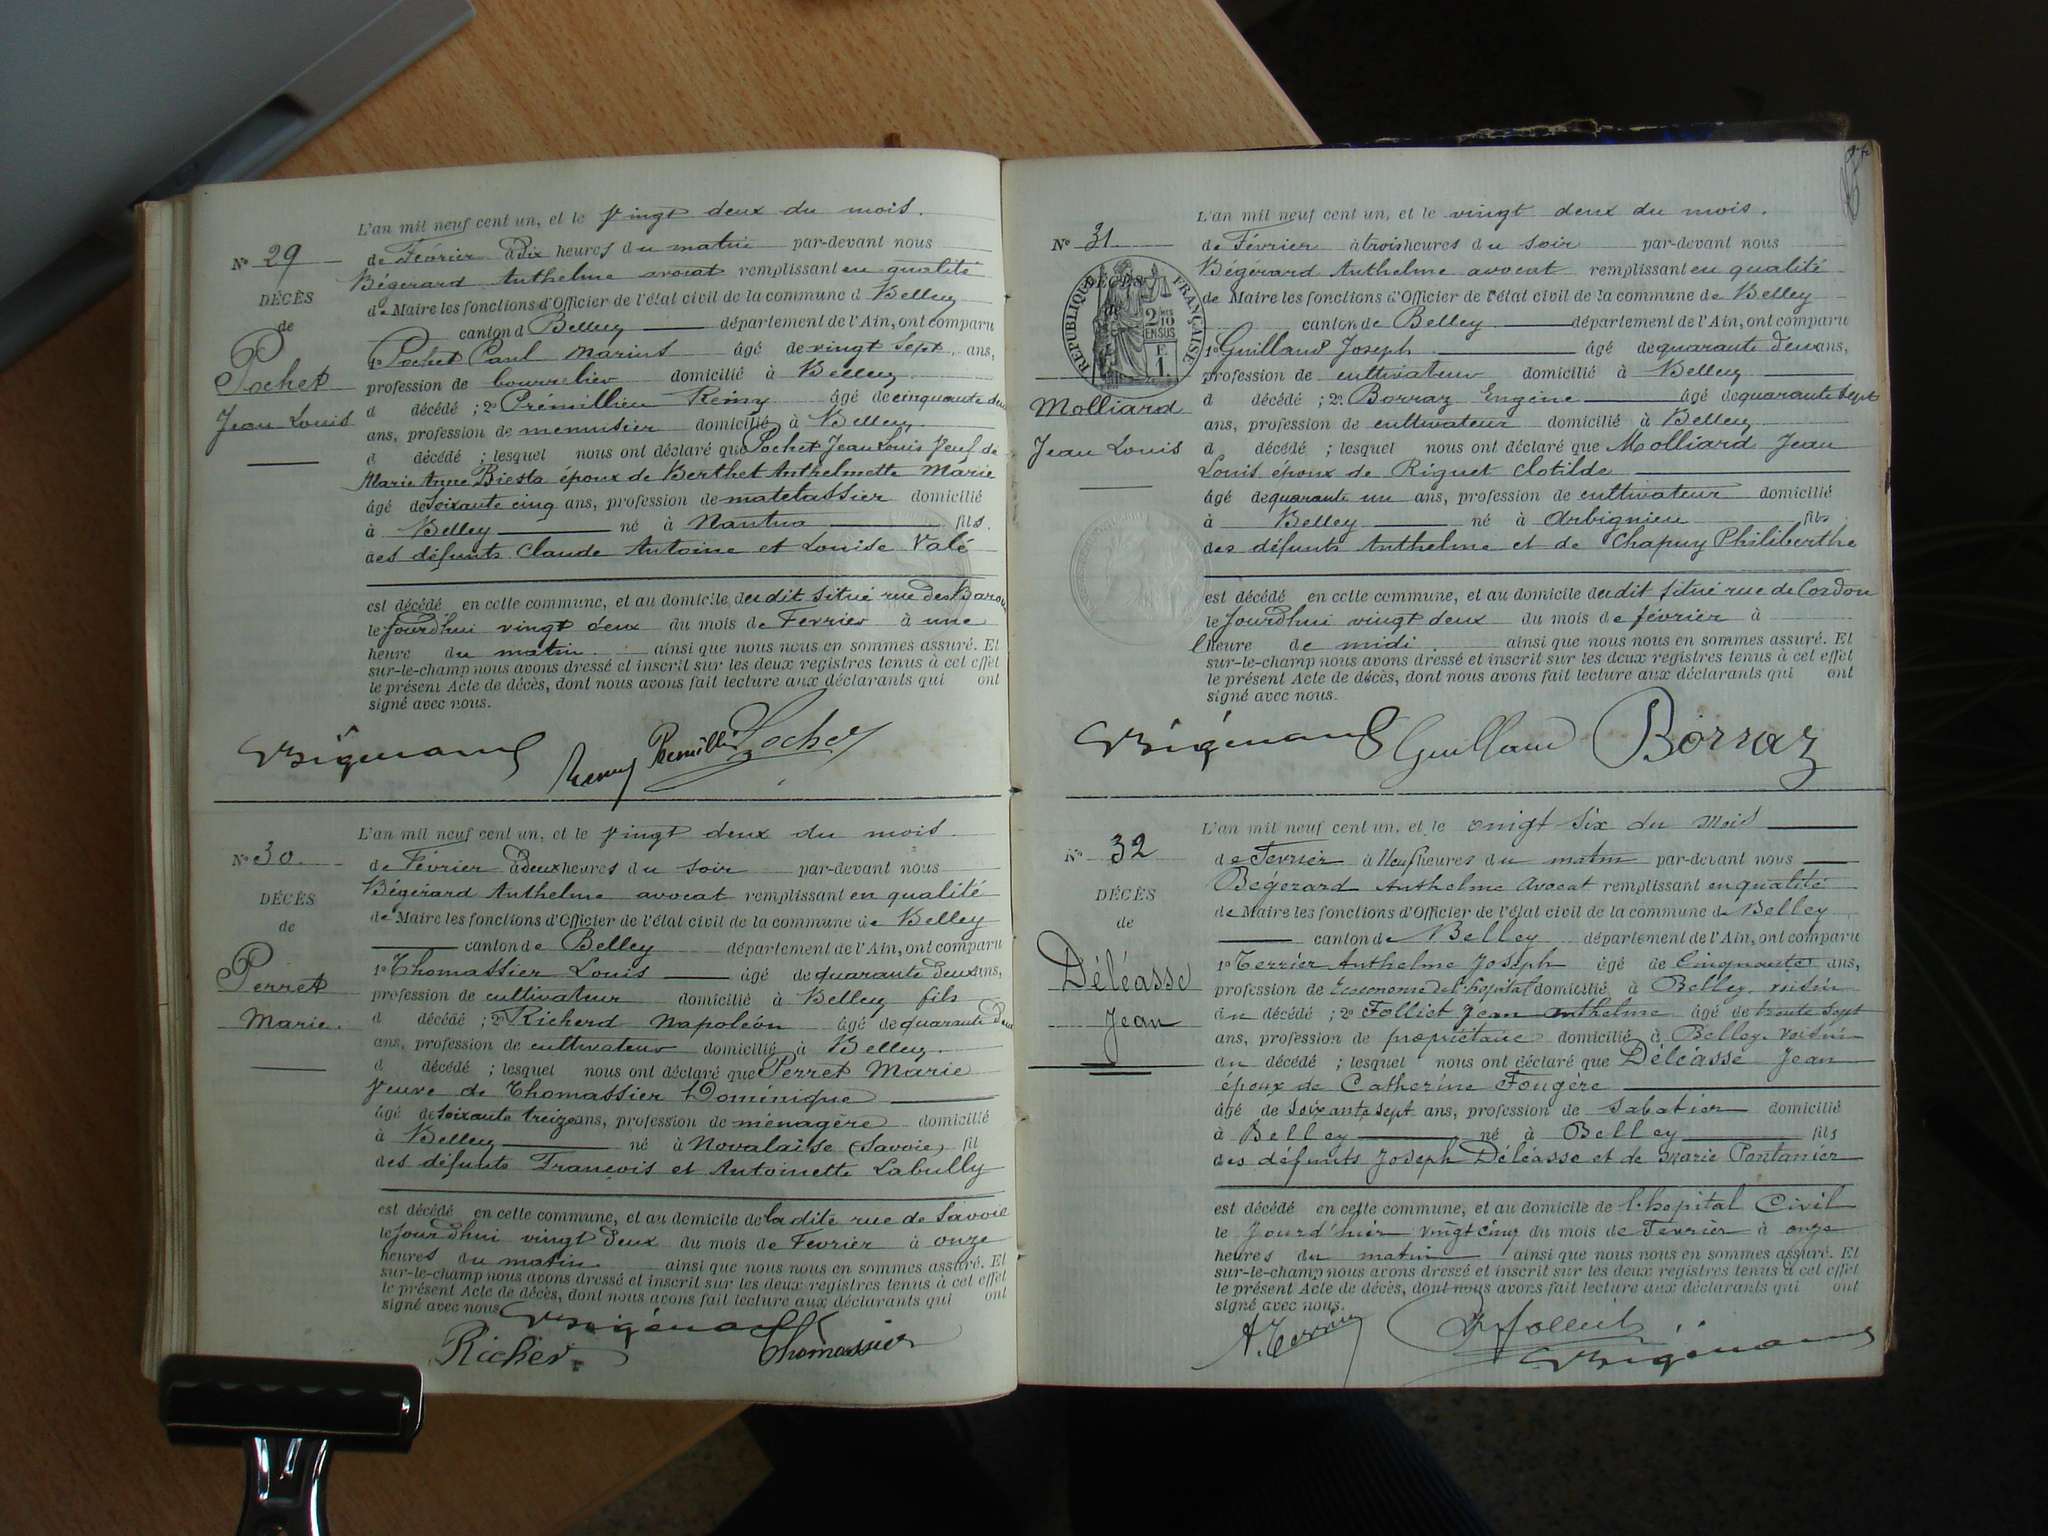 L'an mil neuf cent un, et le vingt deux du mois.
No 29
de Février à dix heures du matin par-devant nous
Bégérard Anthelme avocat remplissant en qualité
DÉCÈS
de Maire les fonctions d'Officier de l'état civil de la commune d Belley
de
canton d Belley département de l'Ain, ont comparu
Pochet
1o Pochet Paul Marius âgé de vingt sept ans,
profession de bourrelier domicilié à Belley
Jean Louis
d décédé ; 2o Prémillieu Rémy âgé de cinquante deux
ans, profession de menuisier domicilié à Belley
d décédé ; lesquel nous ont déclaré que Pochet Jean Louis Veuf de
Marie Anne Biesta époux de Berthet Anthelmette Marie
âgé de soixante cinq ans, profession de matelassier domicilié
à Belley né à Nantua fils
des défunts Claude Antoine et Louise Valé
est décédé en cette commune, et au domicile du dit situé rue des Barons
le jourd'hui vingt deux du mois de Février à une
heure du matin ainsi que nous nous en sommes assuré. Et
sur-le-champ nous avons dressé et inscrit sur les deux registres tenus à cet effet
le présent Acte de décès, dont nous avons fait lecture aux déclarants qui ont
signé avec nous.
Bégérard Remy Prémillieu Pochet
L'an mil neuf cent un, et le vingt deux du mois
No 30
de Février à deux heures du soir par-devant nous
Bégérard Anthelme avocat remplissant en qualité
DÉCÈS
de Maire les fonctions d'Officier de l'état civil de la commune de Belley
de
canton de Belley département de l'Ain, ont comparu
Perret
1o Thomassier Louis âgé de quarante deux ans,
profession de cultivateur domicilié à Belley fils
Marie
d décédé ; 2o Richerd Napoléon âgé de quarante deux
ans, profession de cultivateur domicilié à Belley
d décédé ; lesquel nous ont déclaré que Perret Marie
Veuve de Thomassier Dominique
âgé de soixante treize ans, profession de ménagère domicilié
à Belley né à Novalaise (Savoie) fil
des défunts François et Antoinette Labully
est décédé en cette commune, et au domicile de la dite rue de Savoie
le jourd'hui vingt deux du mois de Fevrier à onze
heures du matin ainsi que nous nous en sommes assuré. Et
sur-le-champ nous avons dressé et inscrit sur les deux registres tenus à cet effet
le présent Acte de décès, dont nous avons fait lecture aux déclarants qui ont
signé avec nous
Bégérard
Richer Thomassier
L'an mil neuf cent un, et le vingt deux du mois.
No 31
de Février à trois heures du soir par-devant nous
Bégérard Anthelme avocat remplissant en qualité
DÉCÈS
RÉPUBLIQUE FRANÇAISE
2/10 EN SUS
F. 1.
de Maire les fonctions d'Officier de l'état civil de la commune de Belley
de
canton de Belley département de l'Ain, ont comparu
1o Guilland Joseph âgé de quarante deux ans,
profession de cultivateur domicilié à Belley
Molliard
d décédé ; 2o Borraz Eugène âgé de quarante sept
ans, profession de cultivateur domicilié à Belley
Jean Louis
d décédé ; lesquel nous ont déclaré que Molliard Jean
Louis époux de Riguet Clotilde
âgé de quarante un ans, profession de cultivateur domicilié
à Belley né à Arbignieu fils
des défunts Anthelme et de Chapuy Philiberthe
est décédé en cette commune, et au domicile du dit situé rue de Cordon
le jourd'hui vingt deux du mois de février à
l'heure de midi ainsi que nous nous en sommes assuré. Et
sur-le-champ nous avons dressé et inscrit sur les deux registres tenus à cet effet
le présent Acte de décès, dont nous avons fait lecture aux déclarants qui ont
signé avec nous.
Bégérard Guilland Borraz
L'an mil neuf cent un, et le vingt six du mois
No 32
de Fevrier à Neuf heures du matin par-devant nous
Bégerard Anthelme Avocat remplissant en qualité
DÉCÈS
de Maire les fonctions d'Officier de l'état civil de la commune de Belley
de
canton de Belley département de l'Ain, ont comparu
Déléasse
1o Terrier Anthelme Joseph âgé de Cinquante ans,
profession de Econome de l'hopital domicilié à Belley voisin
Jean
du décédé ; 2o Folliet Jean Anthelme âgé de trente sept
ans, profession de propriétaire domicilié à Belley voisin
du décédé ; lesquel nous ont déclaré que Déléasse Jean
époux de Catherine Fougère
âgé de soixante sept ans, profession de sabatier domicilié
à Belley né à Belley fils
des défunts Joseph Déléasse et de Marie Pontanier
est décédé en cette commune, et au domicile de l'hopital Civil
le jourd'hier vingt cinq du mois de Fevrier à onze
heures du matin ainsi que nous nous en sommes assuré. Et
sur-le-champ nous avons dressé et inscrit sur les deux registres tenus à cet effet
le présent Acte de décès, dont nous avons fait lecture aux déclarants qui ont
signé avec nous.
A. Terrier Folliet
Bégérard